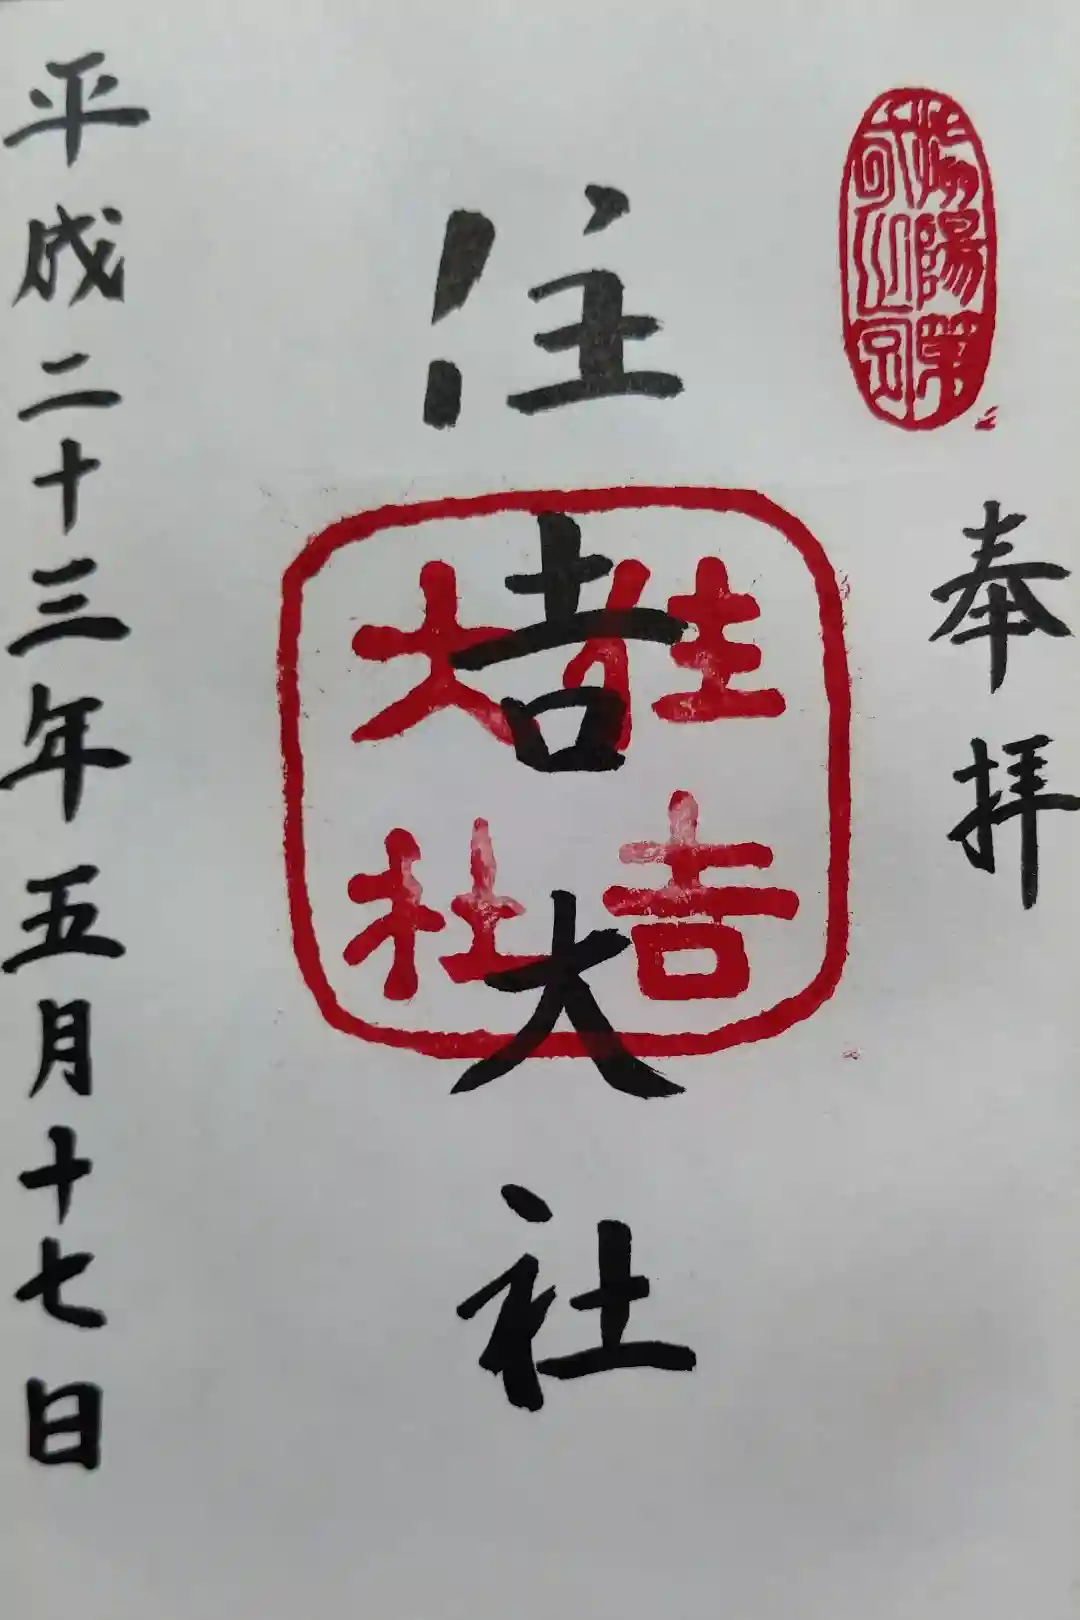 奉拝
住吉大社
住吉大社
平成二十三年五月十七日